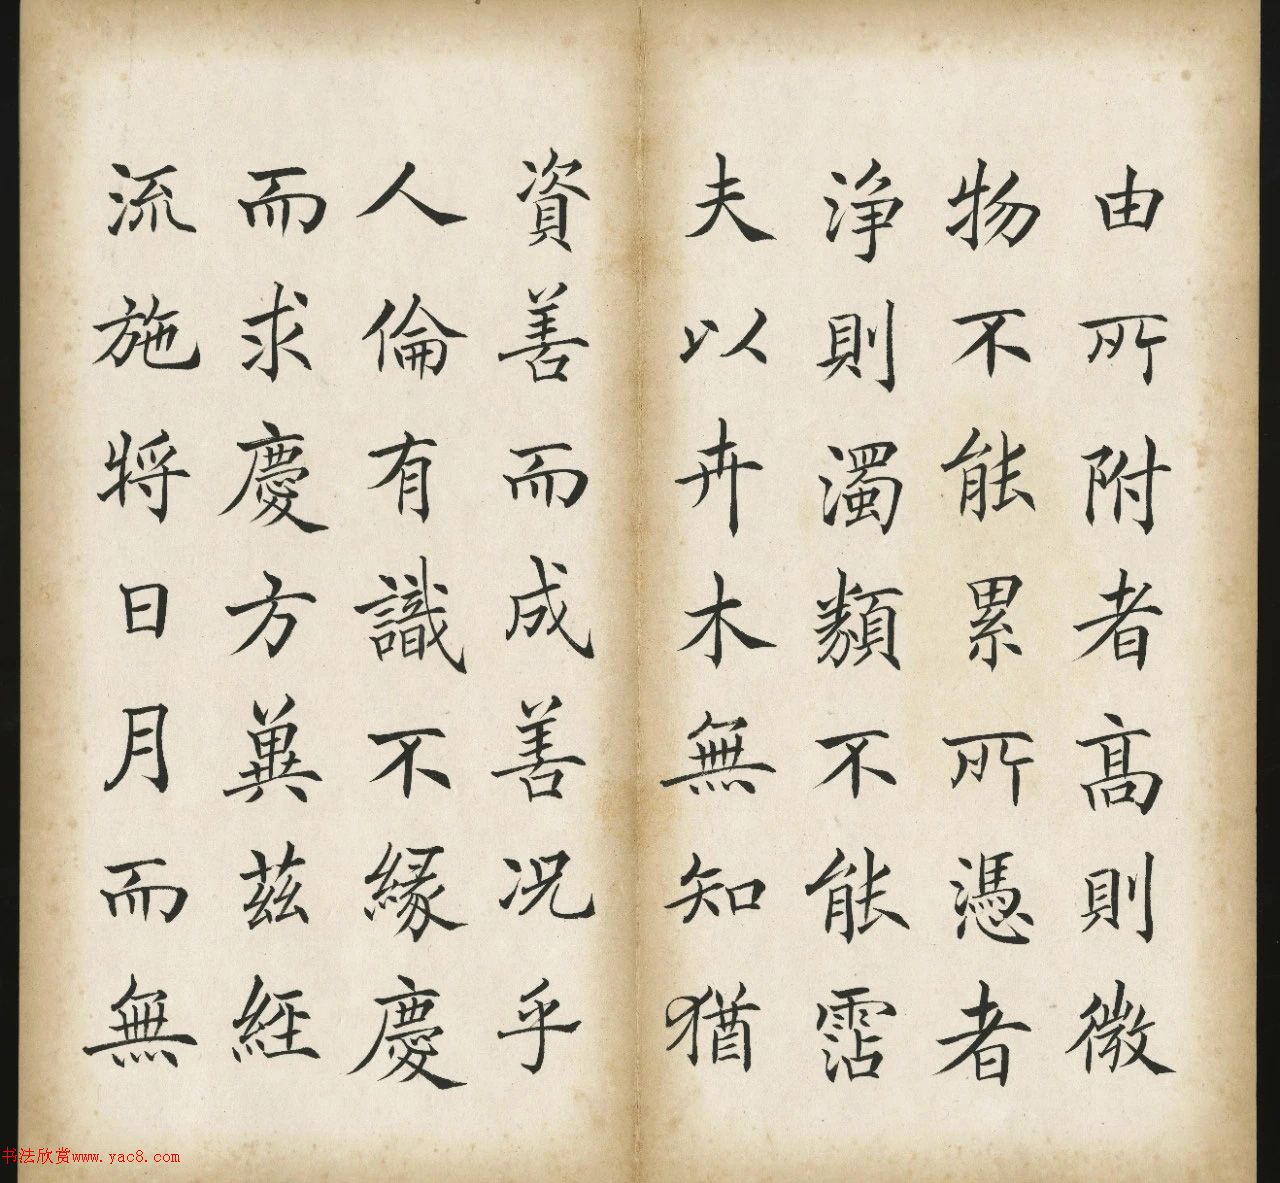 由所附者高則微
物不能累所憑者
浄則濁類不能霑
夫以卉木無知猶
資善而成善況乎
人倫有識不緣慶
而求慶方兾茲經
流施將日月而無
书法欣赏www.yac8.com